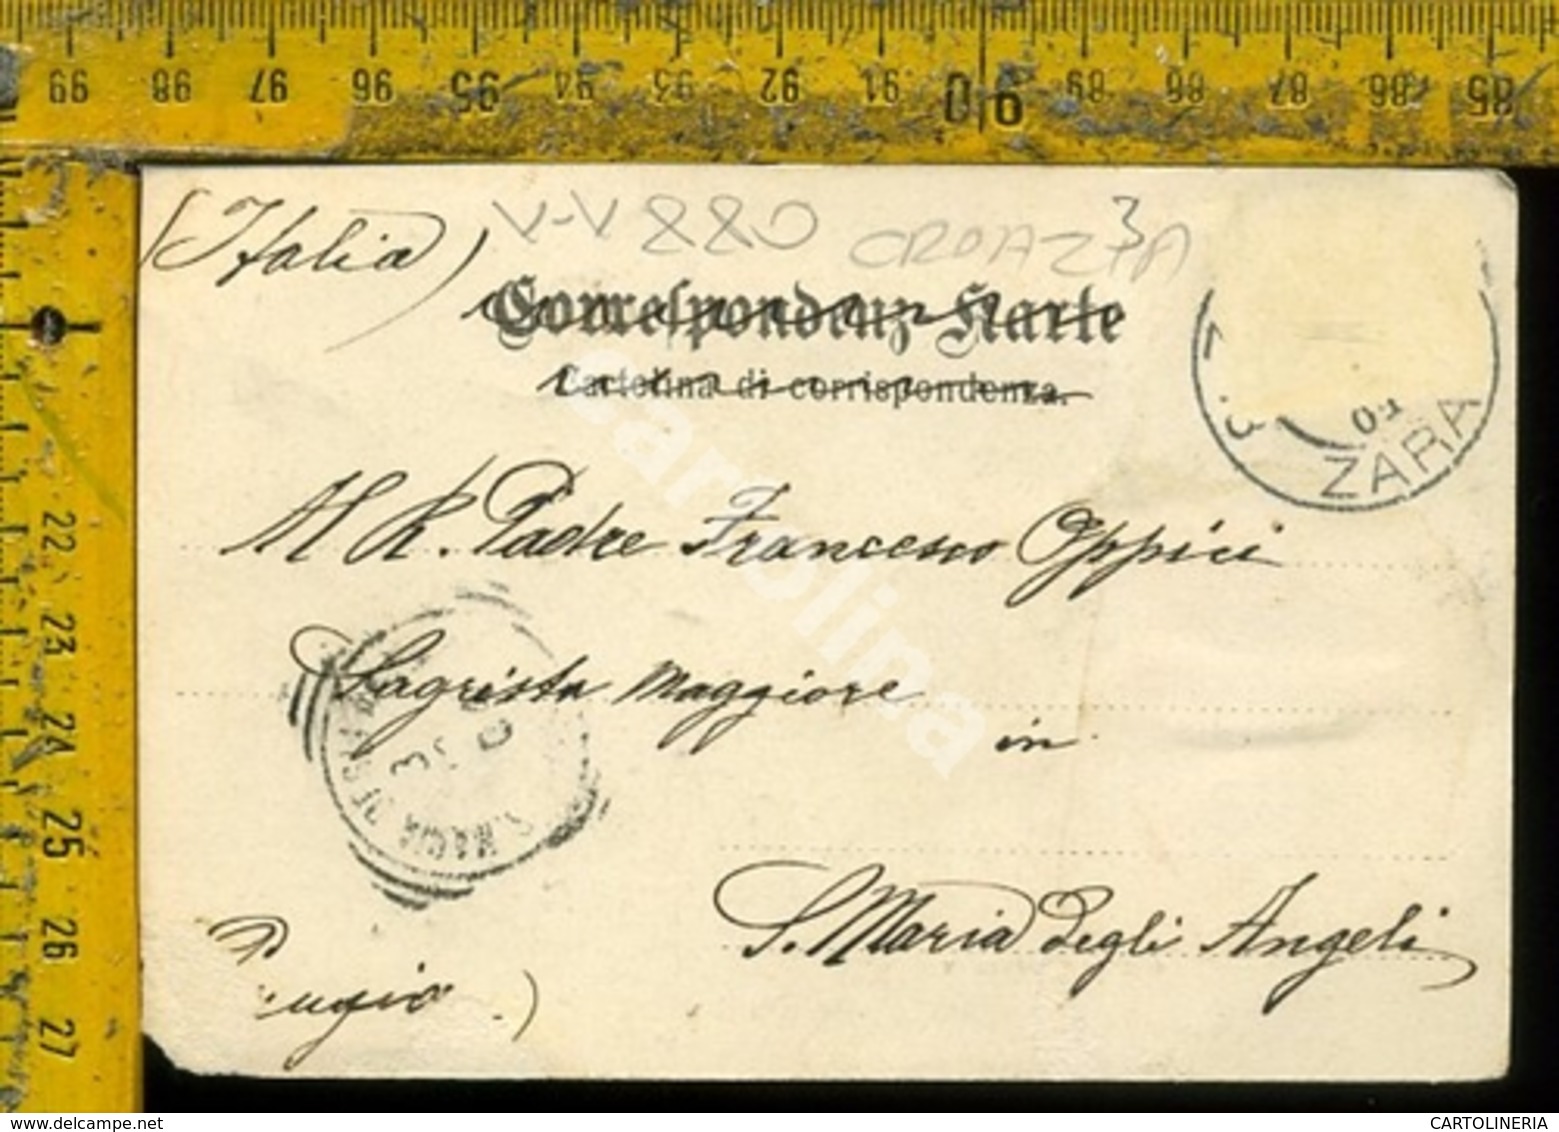 99 98 97 96 95 94 93 92 91 90 89 88 87 86 85
(Italia)
V-V 880 CROAZIA
3
Correspondenz-Karte
Cartolina di corrispondenza.
ZARA
M. R. Padre Francesco Oppici
Sagrista Maggiore
in
S. Maria degli Angeli
22
23
24
25
26
27
cartolina
CARTOLINERIA